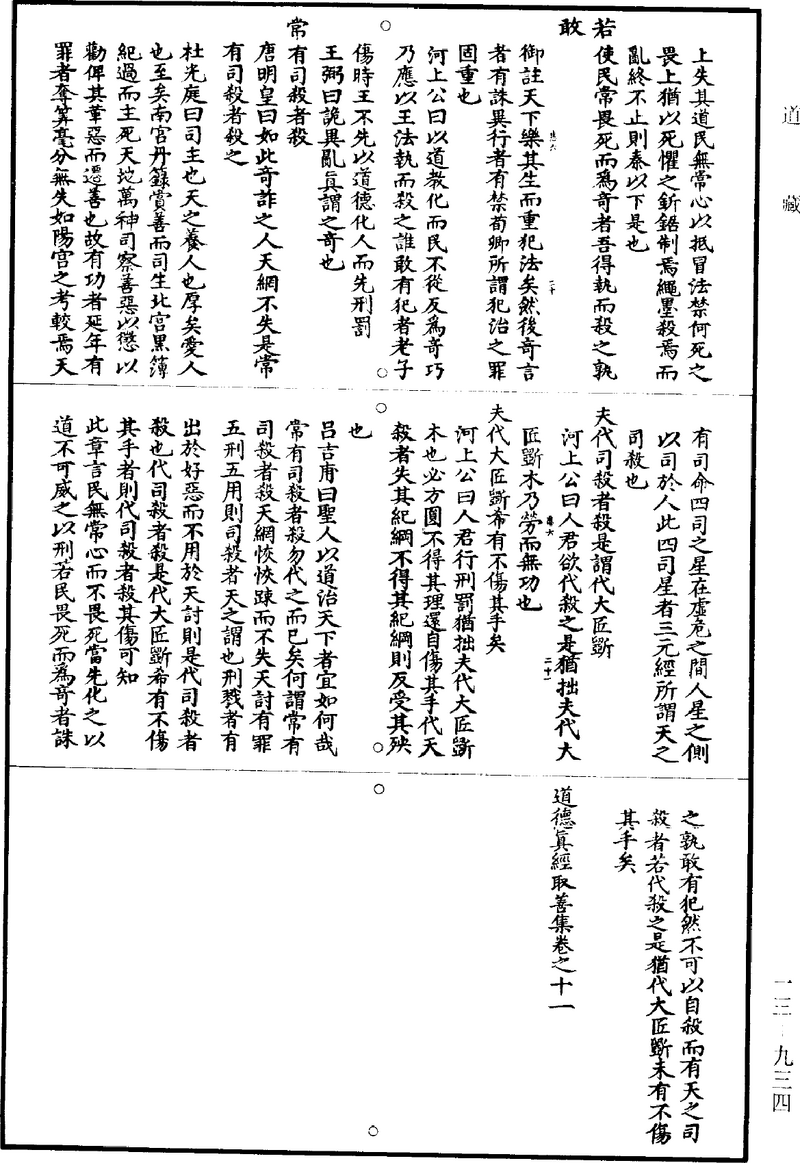 道藏
上失其道民無常心以抵冒法禁何死之
畏上猶以死懼之釿鋸制焉繩墨殺焉而
亂終不止則秦以下是也
若使民常畏死而爲奇者吾得執而殺之孰
敢
御註天下樂其生而重犯法矣然後奇言
者有誅異行者有禁荀卿所謂犯治之罪
固重也
河上公曰以道教化而民不從反爲奇巧
乃應以王法執而殺之誰敢有犯者老子
傷時王不先以道德化人而先刑罰
王弼曰詭異亂眞謂之奇也
常有司殺者殺
唐明皇曰如此奇詐之人天網不失是常
有司殺者殺之
杜光庭曰司主也天之養人也厚矣愛人
也至矣南宮丹籙賞善而司生北宮黑簿
紀過而主死天地萬神司察善惡以懲以
勸俾其革惡而遷善也故有功者延年有
罪者奪筭毫分無失如陽宮之考較焉天
有司命四司之星在虛危之間人星之側
以司於人此四司星者三元經所謂天之
司殺也
夫代司殺者殺是謂代大匠斲
河上公曰人君欲代殺之是猶拙夫代大
匠斲木乃勞而無功也
夫代大匠斲希有不傷其手矣
河上公曰人君行刑罰猶拙夫代大匠斲
木也必方圓不得其理還自傷其手代天
殺者失其紀綱不得其紀綱則反受其殃
也
呂吉甫曰聖人以道治天下者宜如何哉
常有司殺者殺勿代之而已矣何謂常有
司殺者殺天網恢恢踈而不失天討有罪
五刑五用則司殺者天之謂也刑戮者有
出於好惡而不用於天討則是代司殺者
殺也代司殺者殺是代大匠斲希有不傷
其手者則代司殺者殺其傷可知
此章言民無常心而不畏死當先化之以
道不可威之以刑若民畏死而爲奇者誅
之孰敢有犯然不可以自殺而有天之司
殺者若代殺之是猶代大匠斲未有不傷
其手矣
道德眞經取善集卷之十一
二三-九三四